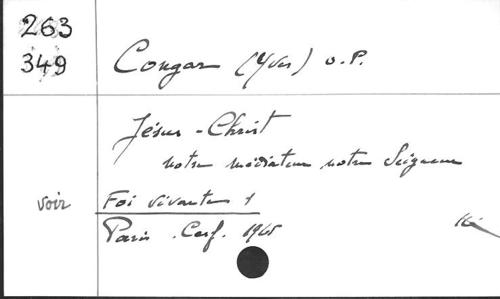 263
349
Congar (Yves) o.P.
Jésus-Christ
notre médiateur notre Seigneur
voir Foi vivante 1
Paris. Cerf. 1965